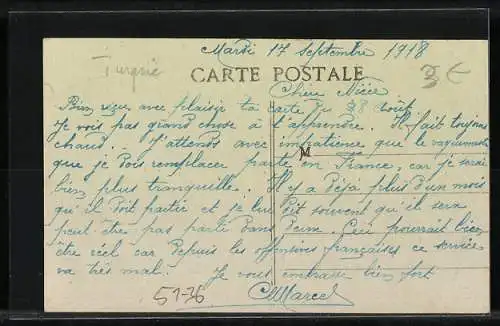 Mardi 17 septembre 1918
Turquie
CARTE POSTALE
3 €
Chère Nièce
Bien reçu avec plaisir ta carte du 28 août.
Je vois pas grand chose à t'apprendre. Il fait toujours
chaud. J'attends avec impatience que le
M
que je dois remplacer parte en France, car je serai
bien plus tranquille. Il y a déjà plus d'un mois
qu'il doit partir et je lui dit souvent qu'il sera
peut être pas parti dans Ceci pourrait bien
être réel car depuis les offensives françaises ce service
va très mal. Je vous embrasse bien fort
Marcel
51-36